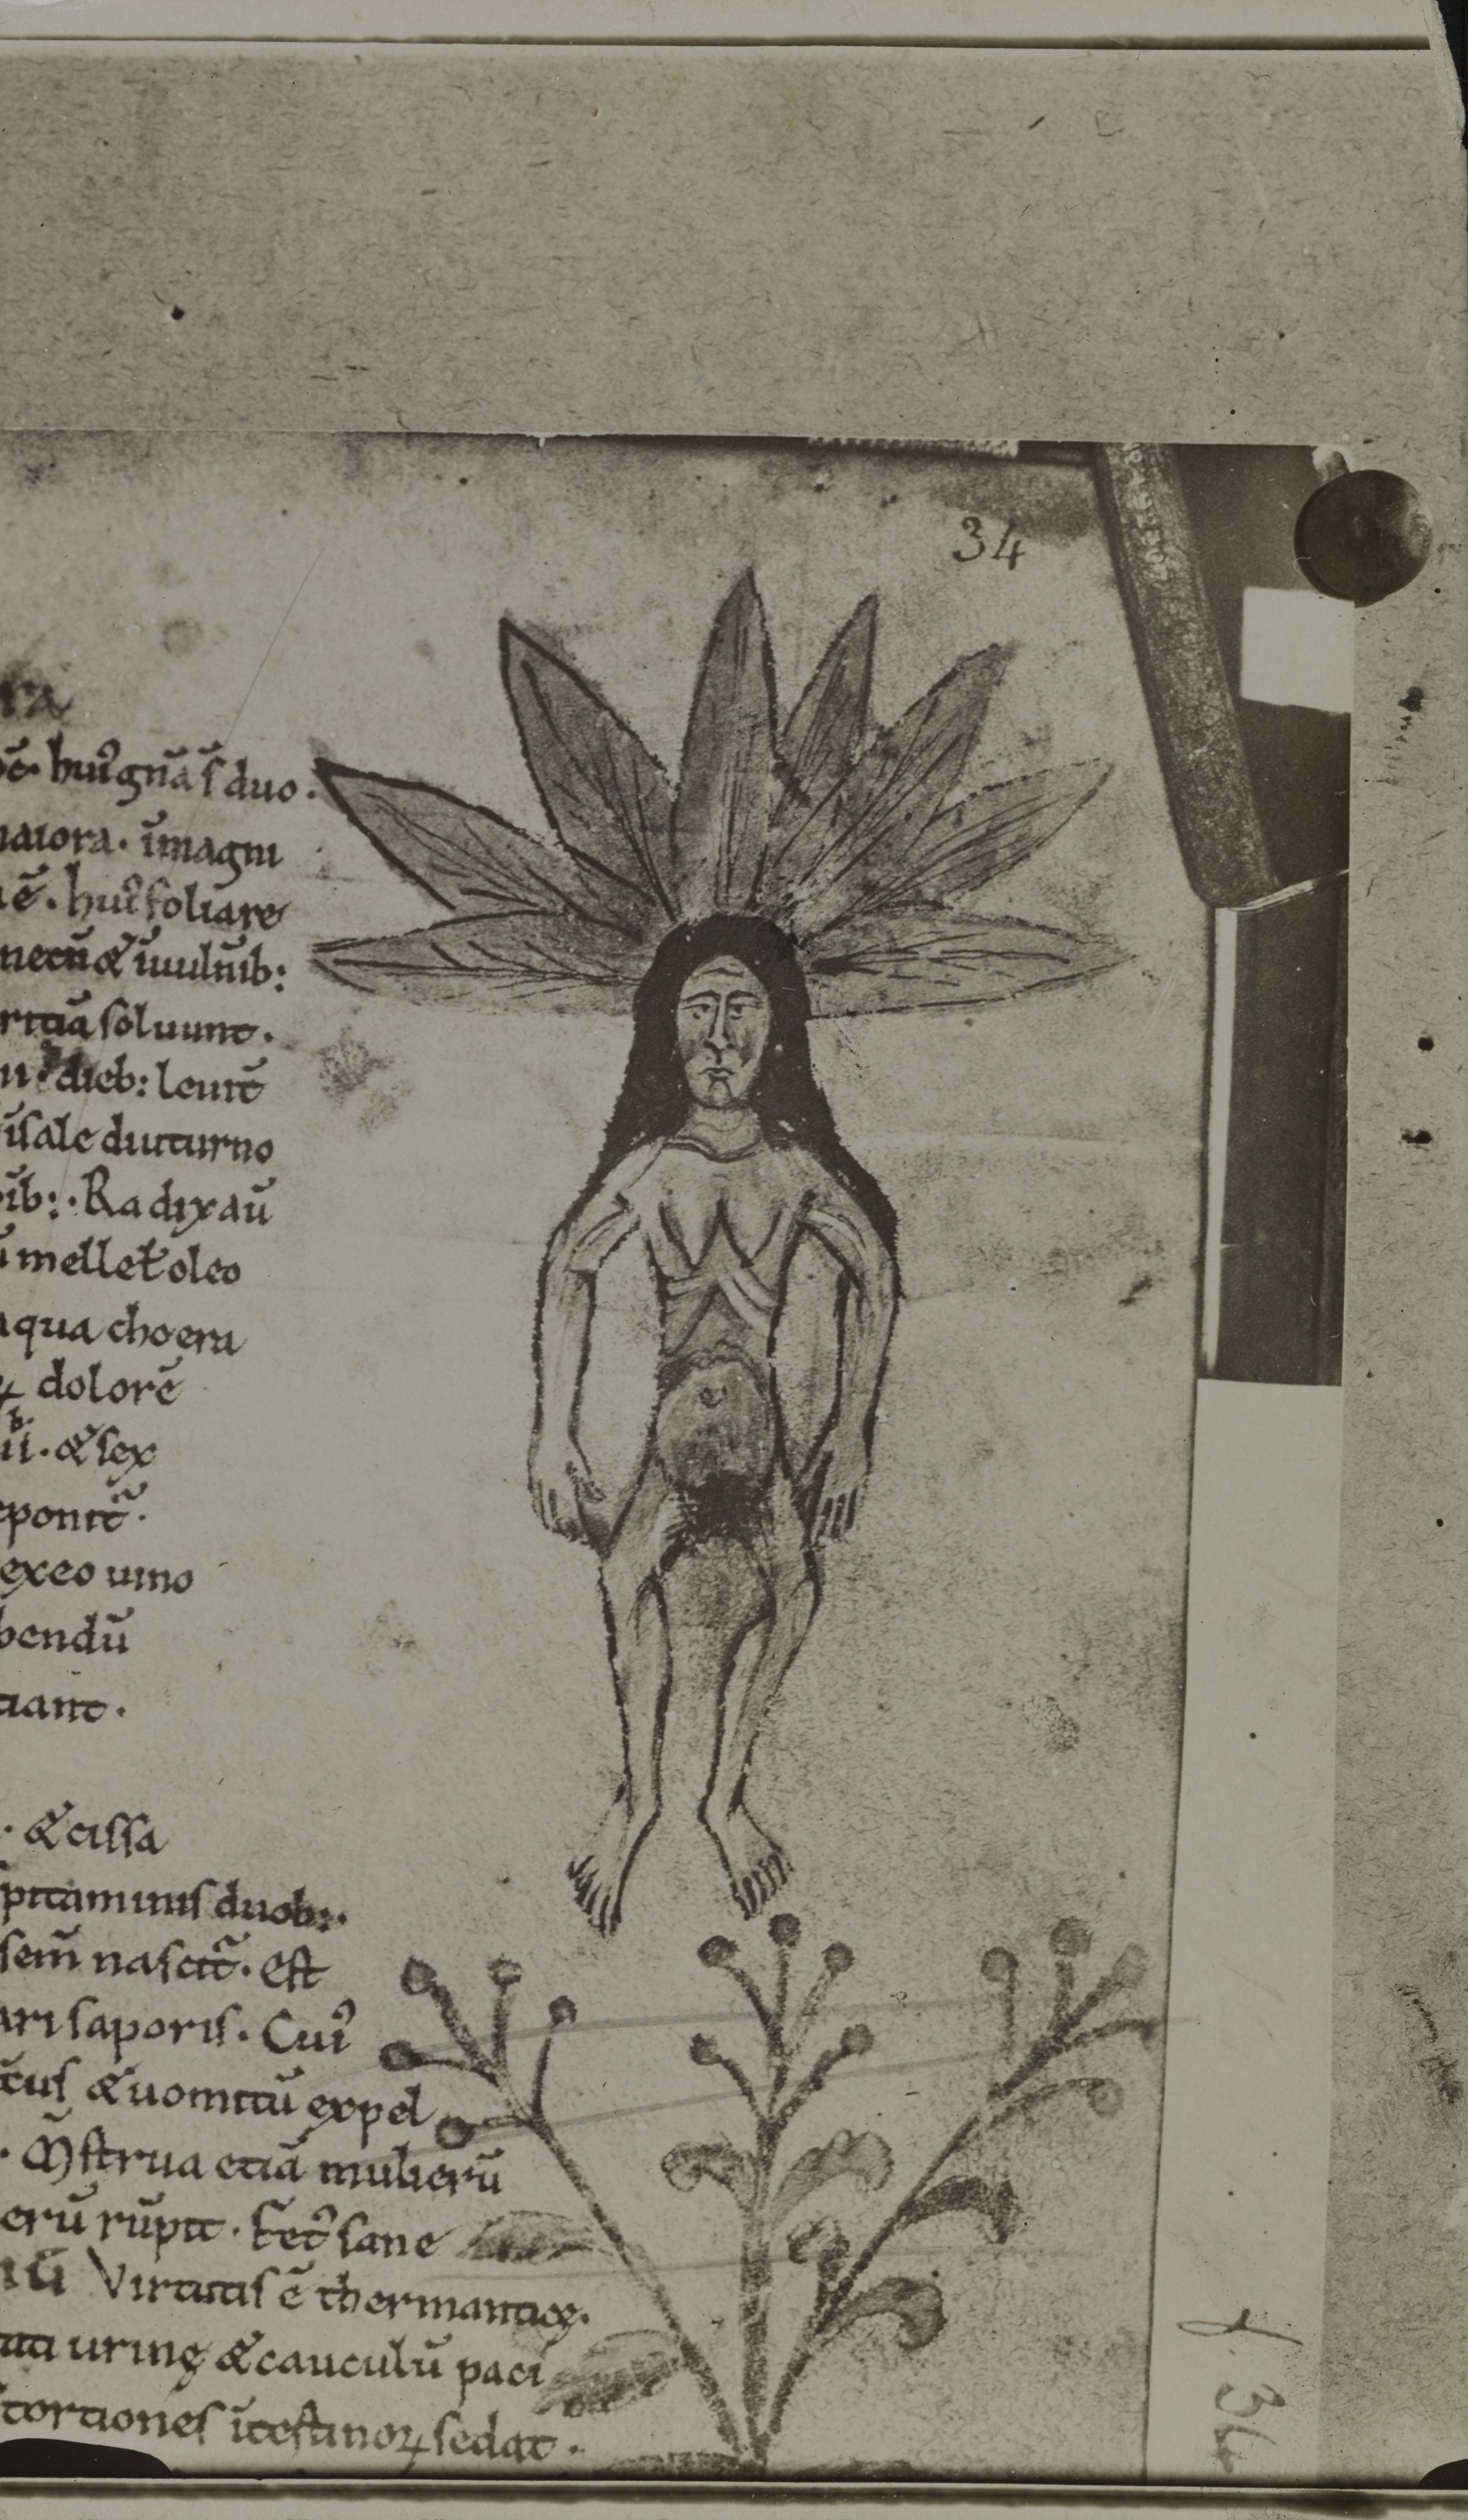 34
ra
hui᷒ gn̄a s̄ duo.
maiora. īmagni
hui᷒ foliare
necū & īuulnib:
soluunt.
dieb: leuit̄
īsale diuturno
ib:. Radix aū
melle ł oleo
aqua choera
dolorē
b.
ii. & sex
eponit̄.
exeo uino
bendū
ciant.
. & cissa
pitaminis duob:.
sem̄ nascit̄. Est
ari saporis. Cui᷒
cus & uomitū expel
. M̄strua etiā mulierū
erū rūpit. sane
Virtutis ē thermantice.
urinę & cauculū paci
tortiones ītestinoꝝ sedat.
f. 34